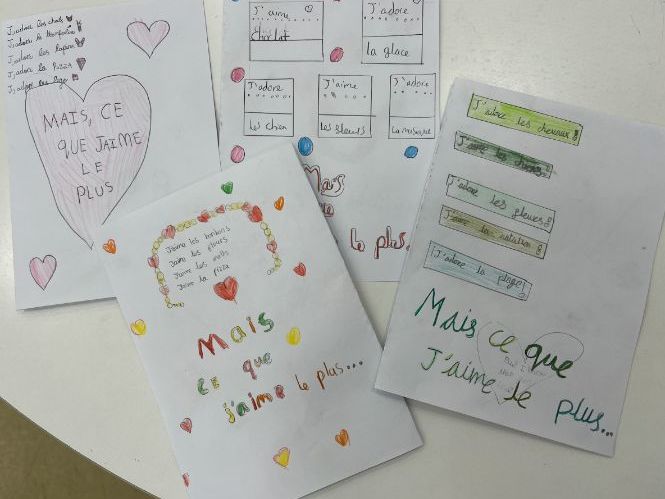 J'adore les chats
J'adore la
J'adore les lapins
J'adore la Pizza
J'adore
MAIS, CE
QUE J'AIME
LE
PLUS
J'aime
J'adore
la glace
J'adore
les chien
J'aime
les fleurs
J'adore
La musique
Mais
le plus..
J'aime les bonbons
J'aime les fleurs
J'aime les
J'aime la pizza
Mais
ce que
j'aime le plus...
J'adore les chevaux
J'adore les
J'adore les fleures
J'adore la natation
J'adore la plage
Mais ce que
J'aime le plus...